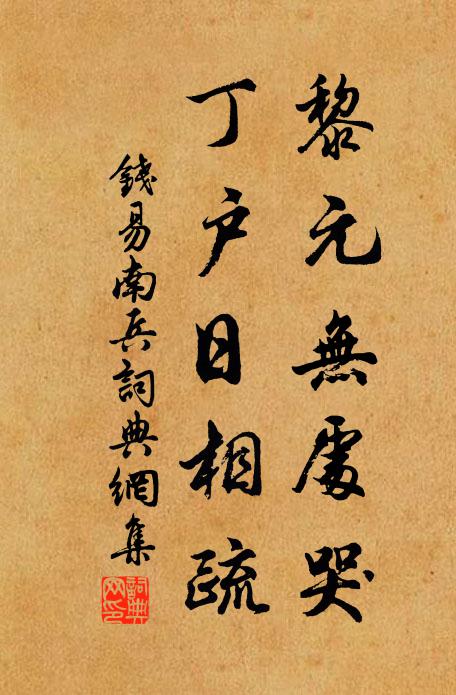 黎元無處哭
丁户日相疏
錢易南兵詞典網集
詞典網印